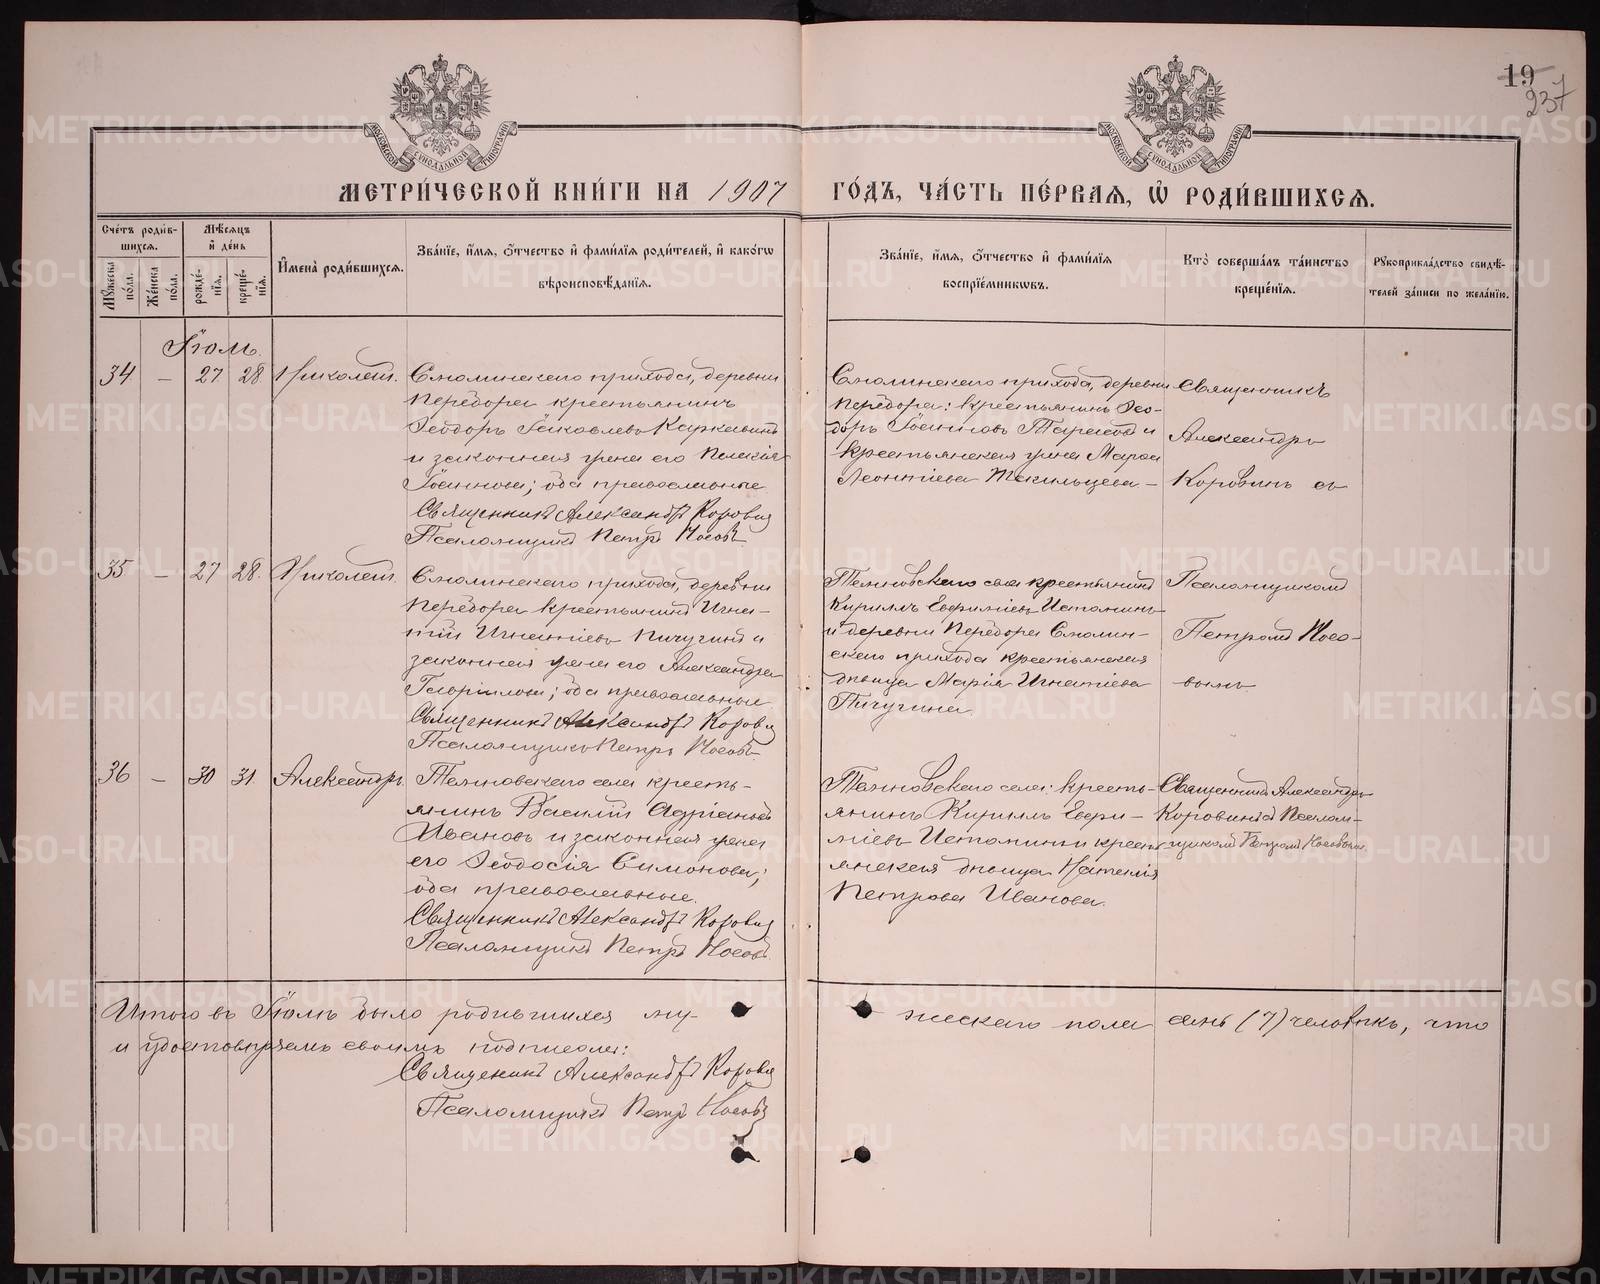 19
237
МОСКОВСКОЙ СУНОДАЛЬНОЙ ТИПОГРАФІИ
МОСКОВСКОЙ СУНОДАЛЬНОЙ ТИПОГРАФІИ
МЕТРИ́ЧЕСКОЙ КНИ́ГИ НА 1907 ГО́ДЪ, ЧА́СТЬ ПЕ́РВАЯ, Ѽ РОДИ́ВШИХСЯ.
Сче́тъ роди́в-
шихся.
Мѣ́сяцъ
и҆ де́нь
Мꙋ́жеска по́ла.
Же́нска по́ла.
рожде́-
нїя.
креще́-
нїя.
И҆мена̀ роди́вшихся.
Зва́нїе, и҆́мя, ѻ҆́тчество и҆ фами́лїя роди́телей, и҆ како́гѡ
вѣроисповѣ́данїя.
Зва́нїе, и҆́мя, ѻ҆́тчество и҆ фами́лїя
воспрїе́мникѡвъ.
Кто̀ соверша́лъ та́инство
креще́нїя.
Рꙋкоприкла́дство свидѣ́-
телей за́писи по жела́нїю.
Іюль.
34 — 27 28 Николай.
Смолинскаго прихода, деревни
Перебора крестьянинъ
Ѳеодоръ Іаковлевъ
и законная жена его Пелагія
Іоаннова; оба православные
Священникъ Александръ Коровин
Псаломщикъ Петръ Носовъ
Смолинскаго прихода, деревни
Перебора: крестьянинъ Ѳео-
доръ Іоанновъ Тарасовъ и
крестьянская жена Марѳа
Леонтіева
Священникъ
Александръ
Коровинъ съ
35 — 27 28. Николай.
Смолинскаго прихода, деревни
Перебора крестьянинъ Игна-
тій Игнатіевъ Пичугинъ и
законная жена его Александра
Гавріилова; оба православные
Священникъ Александръ Коровин
Псаломщикъ Петръ Носовъ
Темновскаго села крестьянинъ
Кириллъ Евфиміевъ Истоминъ
и деревни Перебора Смолин-
скаго прихода крестьянская
дѣвица Марія Игнатіева
Пичугина.
Псаломщикомъ
Петромъ Носо-
вымъ
36 — 30 31. Александръ.
Темновскаго села кресть-
янинъ Василій Адріановъ
Ивановъ и законная жена
его Ѳеодосія Симонова;
оба православные.
Священникъ Александръ Коровин
Псаломщикъ Петръ Носовъ.
Темновскаго села: кресть-
янинъ Кириллъ Евфи-
міевъ Истоминъ и кресть-
янская дѣвица Наталія
Петрова Иванова.
Священникъ Александръ
Коровинъ съ Псалом-
щикомъ Петромъ Носовымъ
Итого въ Іюлѣ было родившихся му-
жескаго пола семь (7) человѣкъ, что
и удостовѣряемъ своимъ подписомъ:
Священникъ Александръ Коровин
Псаломщикъ Петръ Носовъ
METRIKI.GASO-URAL.RU